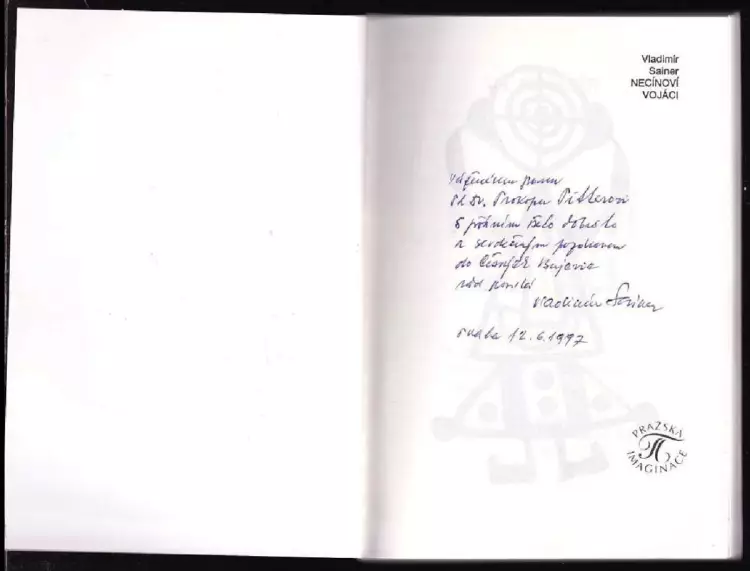 Vladimír
Sainer
NECÍNOVÍ
VOJÁCI
Váženému panu
PhDr. Prokopu Pitterovi
s přáním všeho dobrého
a srdečným pozdravem
do Českých Budějovic
rád posílá
Vladimír Sainer
Praha 12.6.1997
PRAŽSKÁ
IMAGINACE